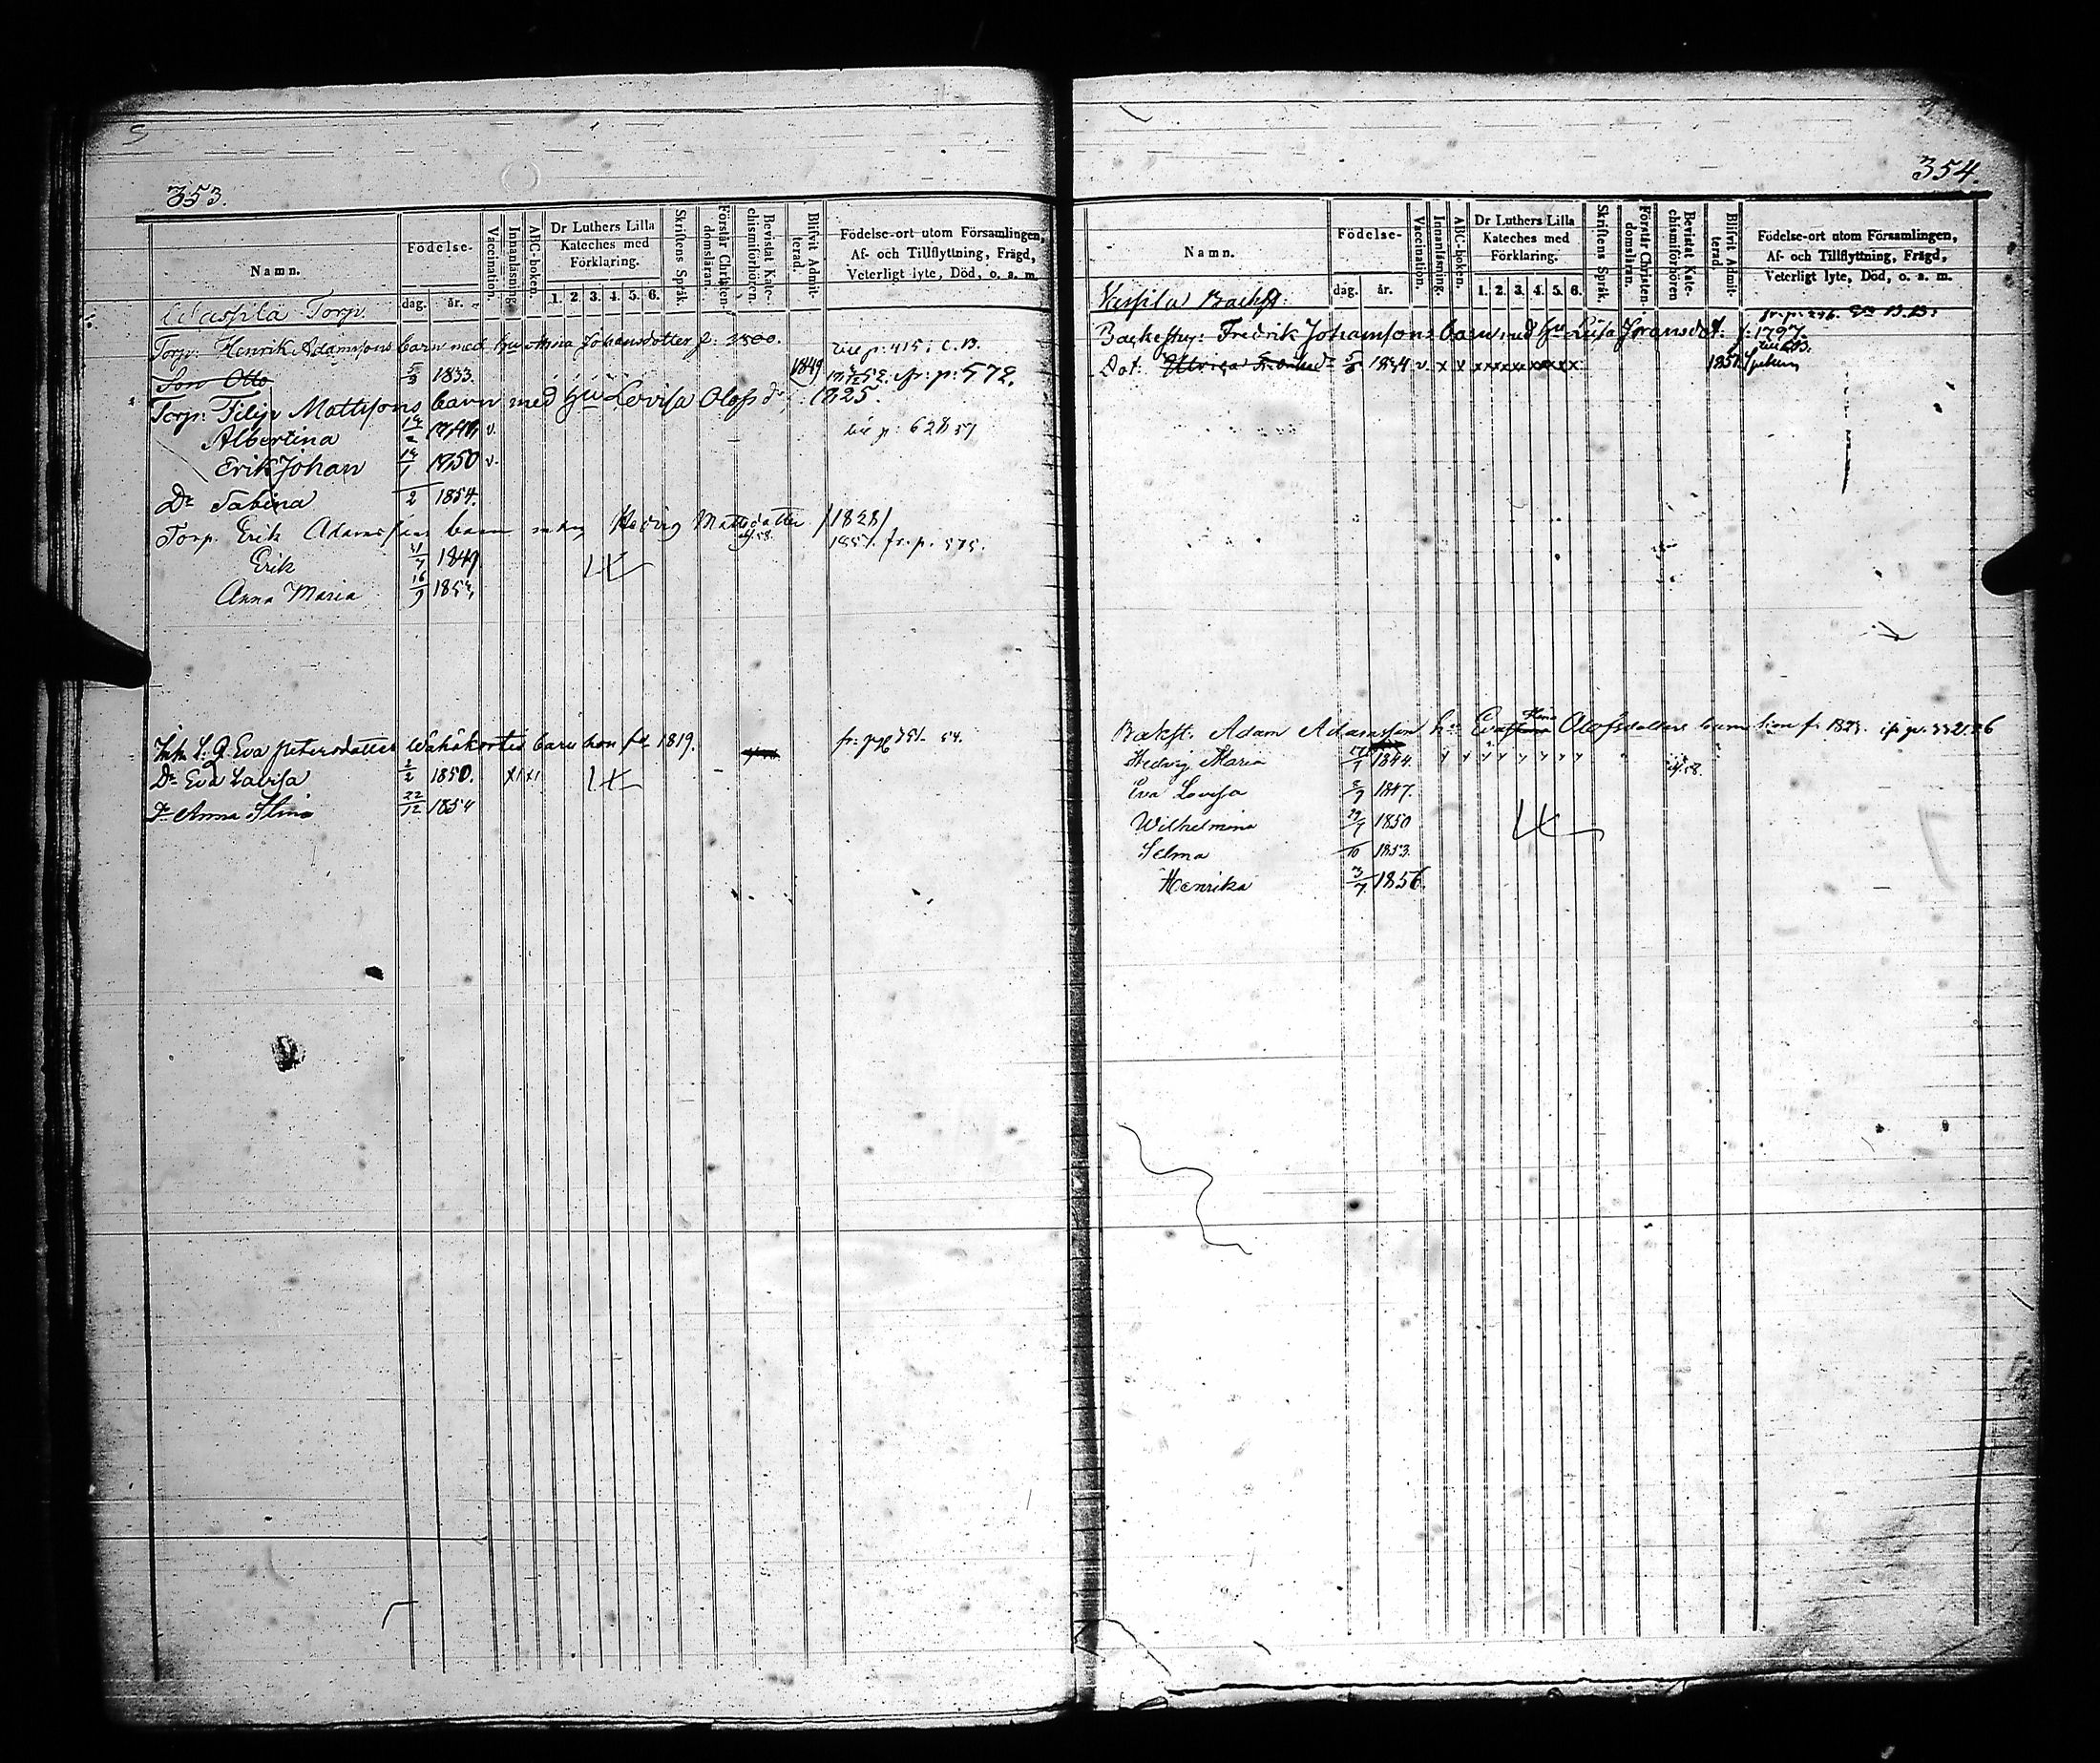 353.
Namn.
Födelse-
dag. år.
Vaccination.
Innanläsning.
ABC-boken.
Dr Luthers Lilla
Kateches med
Förklaring.
1. 2. 3. 4. 5. 6.
Skriftens Språk.
Förstår Christen-
domsläran.
Bevistat Kate-
chismiförhören.
Blifvit Admit-
terad.
Födelse-ort utom Församlingen,
Af- och Tillflyttning, Frägd,
Veterligt lyte, Död, o. a. m.
Waspila Torp
Torp: Henrik Adamssons barn med Hu Anna Johansdotter f: 1800. p: 415; C. B.
Son Otto 1833. 1849 p: 572.
Torp: Filip Mattssons barn med Hu Lovisa Olofsdr f: 1825.
Albertina v. p: 628
Erik Johan 1850 v.
Dr Sabina 2 1854.
Torp. Erik Adamssons barn Hedvig Mattsdotter /1828/
1857. fr. p. 575.
Erik 1849
Anna Maria 16/9
Inh. Eva Petersdotter barn hon fd 1819. fr. pag 751. 54.
Dr Eva Lovisa 2/2 1850.
Dr Anna Stina 22/12 1854
354.
Namn.
Födelse-
dag. år.
Vaccination.
Innanläsning.
ABC-boken.
Dr Luthers Lilla
Kateches med
Förklaring.
1. 2. 3. 4. 5. 6.
Skriftens Språk.
Förstår Christen-
domsläran.
Bevistat Kate-
chismiförhören
Blifvit Admit-
terad.
Födelse-ort utom Församlingen,
Af- och Tillflyttning, Frägd,
Veterligt lyte, Död, o. a. m.
Vaspila Backst:
Backestug: Fredrik Johanssons barn med Hu Lisa Göransdot. f: 1797.
Dot: 1834 v. x x x x x x x x x x
Backst. Adam Adamsson hu Eva Stina Olofsdotters barn hon f. 1823.
Hedvig Maria 1844.
Eva Lovisa 1847.
Wilhelmina 29/4 1850
Selma /10 1853.
Henrika 3/7 1856.